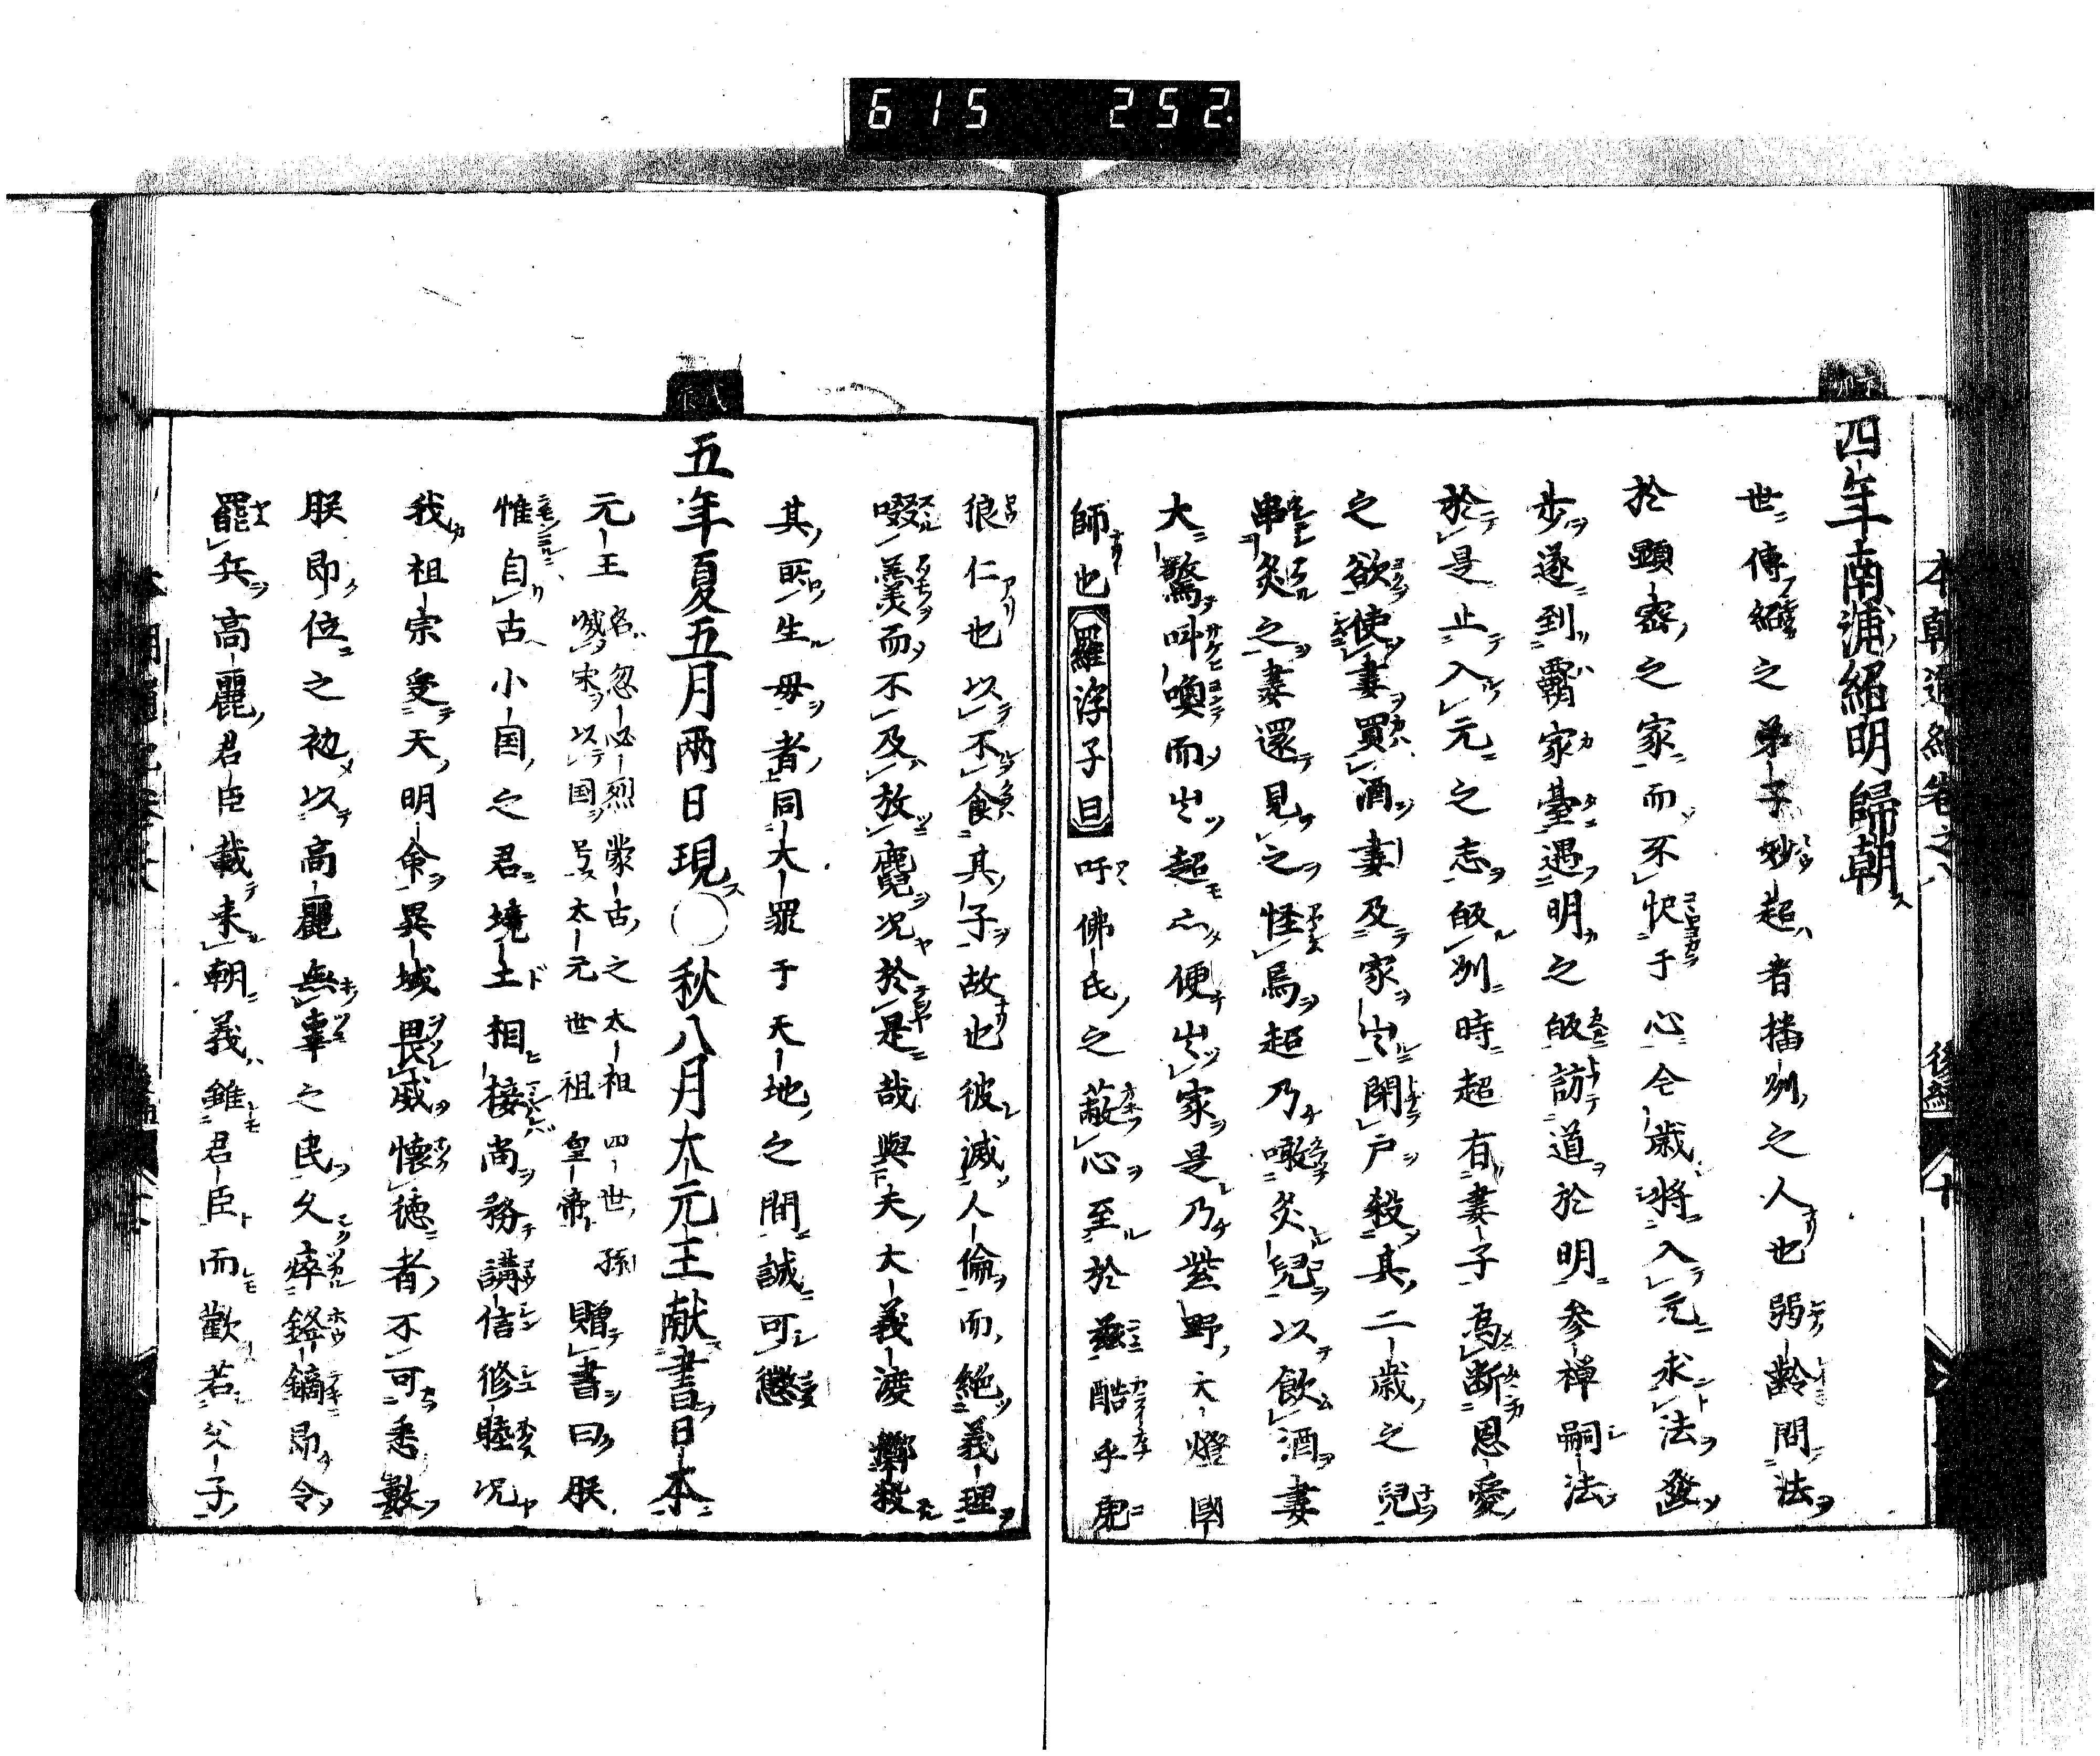 615 252
本朝通紀卷之八 後編
四年南浦紹明歸朝ス
世傳紹之弟子妙超者播州之人也弱齡問法
於顯密之家而不快于心仝歳將入元求法發
步遂到覇家臺遇明之皈訪道於明參禅嗣法
於是止入元之志皈州時超有妻子為断恩愛
之欲使妻買酒妻及家出閉戸殺其二歳之兒
串炙之妻還見之怪焉超乃噉炙兒以飲酒妻
大驚叫喚而出超亦便出家是乃紫野大燈國
師也羅浮子曰吁佛氏之蔽心至於茲酷乎虎
狼仁也以不食其子故也彼滅人倫而絶義理
啜羹而不及放麑况於是哉與夫大義渡擲殺
其所生母者同大罪于天地之間誠可懲
五年夏五月兩日現ス○秋八月大元王献書日本
元王名忽必烈蒙古之太祖四世孫滅宋以国号太元世祖皇帝贈書曰朕
惟自古小国之君境土相接尚務講信修睦况
我祖宗受天明命異域畏威懐徳者不可悉數
朕即位之初以高麗無辜之民久瘁鋒鏑即令
罷兵高麗君臣載来朝義雖君臣而歡若父子